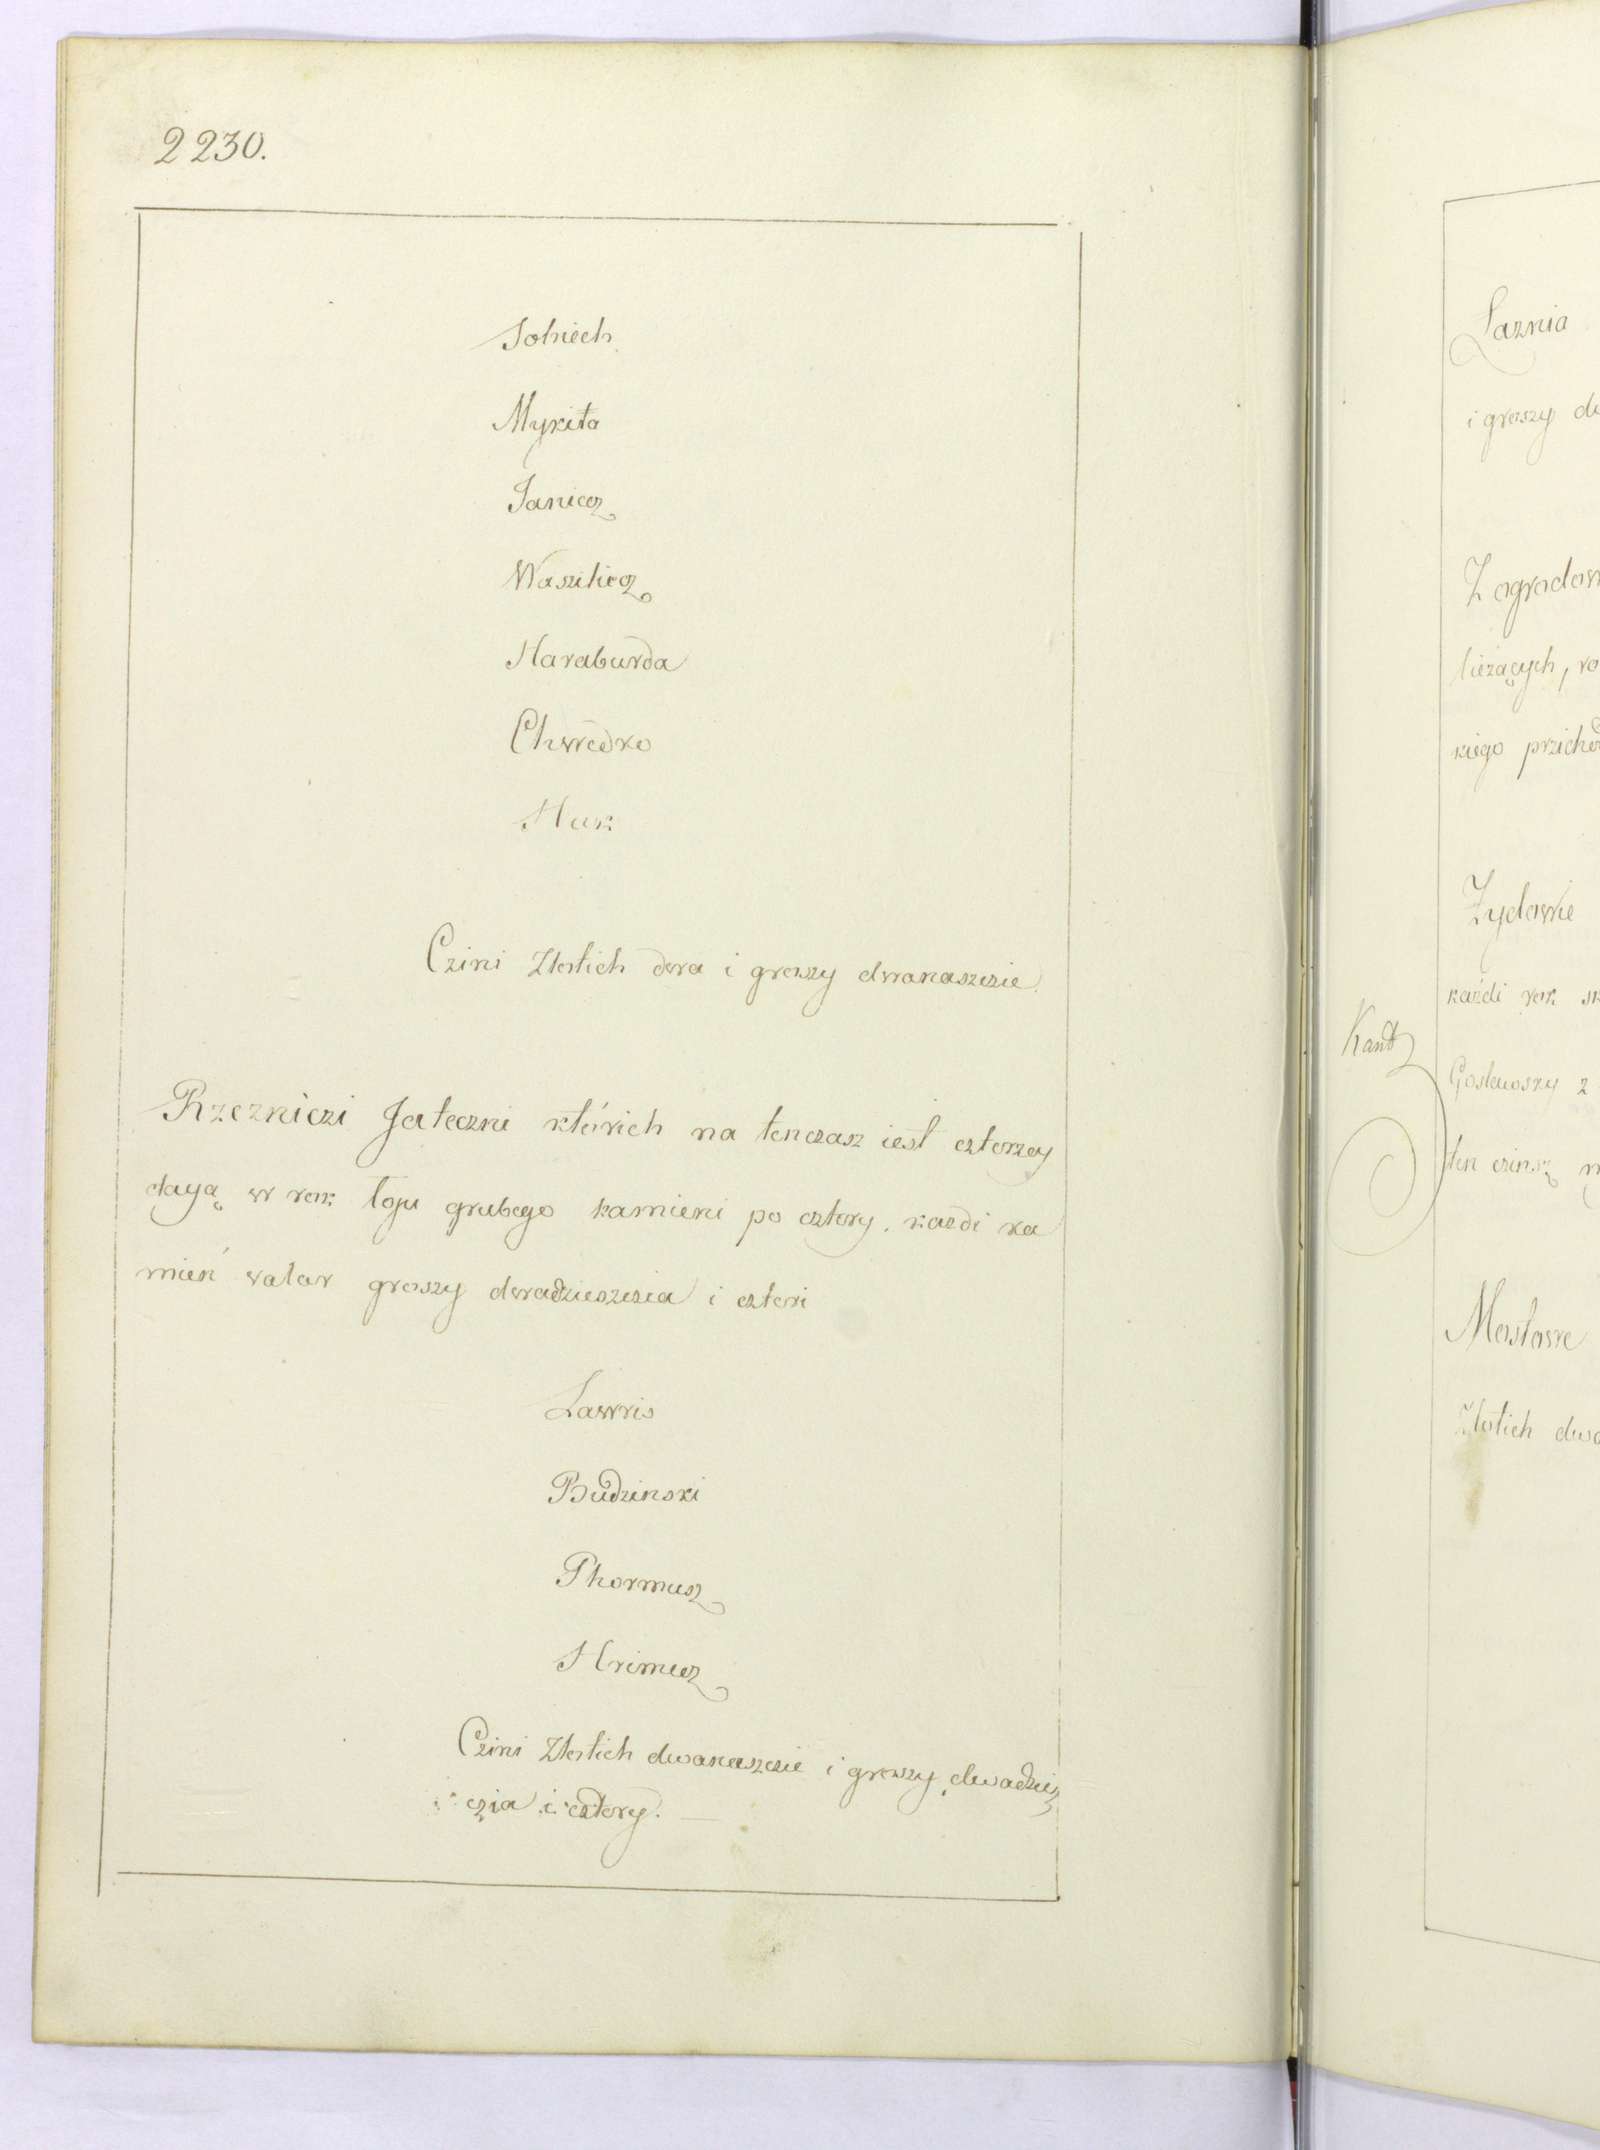 2230.
Sohiech
Mykita
Janicz
Waszilicz
Haraburda
Chwedko
Huk
Czini Złotich dwa i groszy dwanaszczie.
Rzezniczi Jateczni którich na tenczasz iest czterzey
dayą w rok łoju grubego kamieni po cztery. każdi ka
mień valor groszy dwadzieszczia i czteri
Lawris
Budzinski
Phormusz
Hrimusz
Czini Złotich dwanaszczie i groszy dwadziesz
czia i cztery.
Łaznia
i groszy
leżących,
kiego
Żydowie
każdi rok
Kantz
Goslawsky z
ten czinsz
Mostowe
Złotich